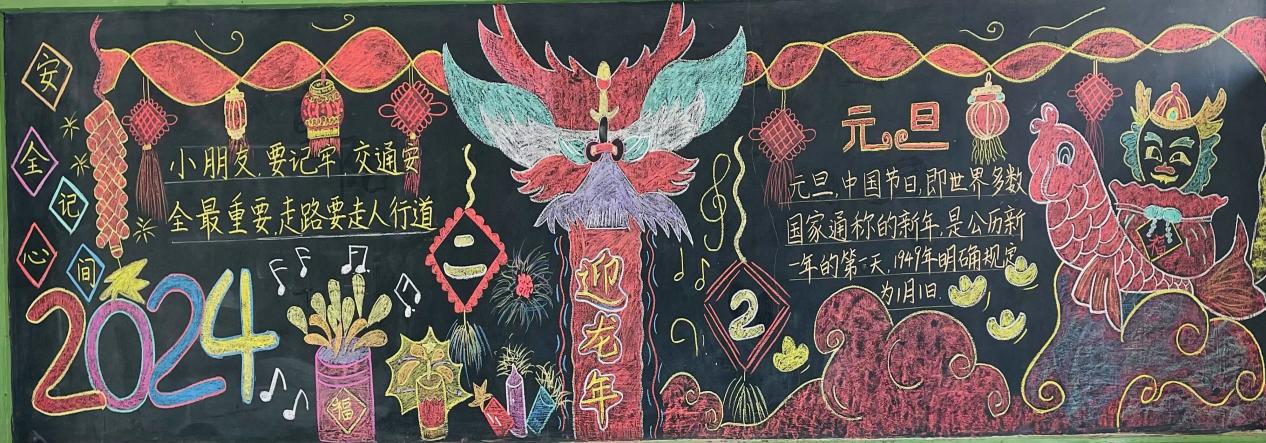 安
全
记
心
间
小朋友,要记牢,交通安
全最重要,走路要走人行道
2024
福
二
迎龙年
2
元旦
元旦,中国节日,即世界多数
国家通称的新年,是公历新
一年的第一天,1949年明确规定
为1月1日.
福